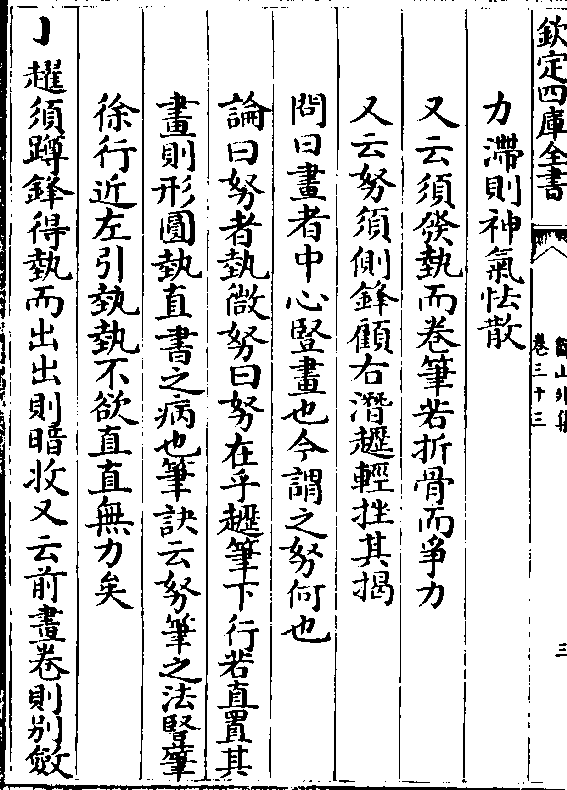 欽定四庫全書
卷三十三
三
力滯則神氣怯散
又云須發埶而卷筆若折骨而爭力
又云努須側鋒顧右潛趯輕挫其揭
問曰畫者中心豎畫也今謂之努何也
論曰努者埶微努曰努在乎趯筆下行若直置其
畫則形圓埶直書之病也筆訣云努筆之法豎筆
徐行近左引埶埶不欲直直無力矣
亅趯須蹲鋒得埶而出出則暗收又云前畫卷則別斂